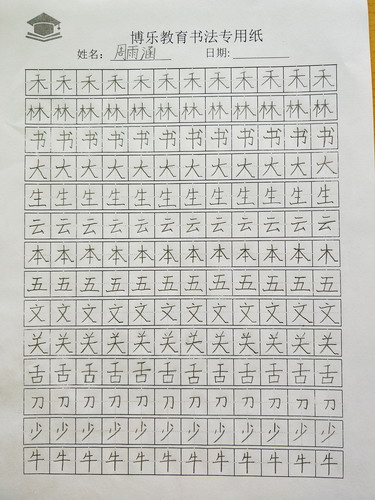 博乐教育书法专用纸
姓名：周雨涵 日期:
禾禾禾禾禾禾禾禾禾禾禾禾
林林林林林林林林林林林林
书书书书书书书书书书书书
大大大大大大大大大大大大
生生生生生生生生生生生生
云云云云云云云云云云云云
本本本本本本本本本本本木
五五五五五五五五五五五五
文文文文文文文文文文文文
关关关关关关关关关关关关
舌舌舌舌舌舌舌舌舌舌舌舌
刀刀刀刀刀刀刀刀刀刀刀刀
少少少少少少少少少少少少
牛牛牛牛牛牛牛牛牛牛牛牛